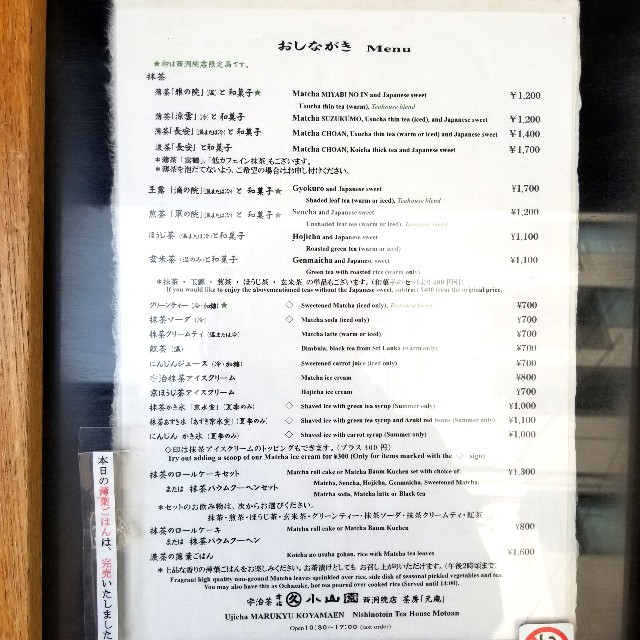 おしながき Menu
★印は西洞院店限定品です。
抹茶
薄茶「雅の院」(温)と 和菓子★ Matcha MIYABI NO IN and Japanese sweet ¥1,200
Usucha thin tea (warm), Teahouse blend
薄茶「涼雲」(冷)と 和菓子 Matcha SUZUKUMO, Usucha thin tea (iced), and Japanese sweet ¥1,200
薄茶「長安」(温または冷)と 和菓子 Matcha CHOAN, Usucha thin tea (warm or iced) and Japanese sweet ¥1,400
濃茶「長安」と 和菓子 Matcha CHOAN, Koicha thick tea and Japanese sweet ¥1,700
*薄茶「雲鶴」、「低カフェイン抹茶」もございます。
*薄茶を泡だてないよう、ご希望の場合はお申し付けください。
玉露「滴の院」(温または冷)と 和菓子★ Gyokuro and Japanese sweet ¥1,700
Shaded leaf tea (warm or iced), Teahouse blend
煎茶「翠の院」(温または冷)と 和菓子★ Sencha and Japanese sweet ¥1,200
Unshaded leaf tea (warm or iced), Teahouse blend
ほうじ茶(温または冷)と和菓子 Hojicha and Japanese sweet ¥1,100
Roasted green tea (warm or iced)
玄米茶(温のみ)と和菓子 Genmaicha and Japanese sweet ¥1,100
Green tea with roasted rice (warm only)
*抹茶・玉露・煎茶・ほうじ茶・玄米茶 の単品もございます。(和菓子のセットより400円引)
If you would like to enjoy the abovementioned teas without the Japanese sweet, subtract ¥400 from the original price.
グリーンティー(冷・加糖)★ ◇ Sweetened Matcha (iced only), Teahouse blend ¥700
抹茶ソーダ(冷) ◇ Matcha soda (iced only) ¥700
抹茶クリームティ(温または冷) Matcha latte (warm or iced) ¥700
紅茶(温) Dimbula, black tea from Sri Lanka (warm only) ¥700
にんじんジュース(冷・加糖) Sweetened carrot juice (iced only) ¥700
宇治抹茶アイスクリーム Matcha ice cream ¥800
京ほうじ茶アイスクリーム Hojicha ice cream ¥700
抹茶かき氷「京氷室」(夏季のみ) ◇ Shaved ice with green tea syrup (Summer only) ¥1,000
抹茶あずき氷「あずき京氷室」(夏季のみ) ◇ Shaved ice with green tea syrup and Azuki red beans (Summer only) ¥1,100
にんじん かき氷(夏季のみ) ◇ Shaved ice with carrot syrup (Summer only) ¥1,000
◇印は抹茶アイスクリームのトッピングもできます。(プラス 300 円)
Try out adding a scoop of our Matcha ice cream for ¥300 (Only for items marked with the ◇ sign)
抹茶のロールケーキセット Matcha roll cake or Matcha Baum Kuchen set with choice of: ¥1,300
または 抹茶バウムクーヘンセット Matcha, Sencha, Hojicha, Genmaicha, Sweetened Matcha,
Matcha soda, Matcha latte or Black tea
*セットのお飲み物は、次からお選びください。
抹茶・煎茶・ほうじ茶・玄米茶・グリーンティー・抹茶ソーダ・抹茶クリームティ・紅茶
抹茶のロールケーキ Matcha roll cake or Matcha Baum Kuchen ¥800
または 抹茶バウムクーヘン
濃茶の薄葉ごはん Koicha no usuba gohan, rice with Matcha tea leaves ¥1,600
*上品な香りの薄葉をお楽しみください。お茶漬けとしても お召し上がりいただけます。(午後2時頃まで)
Fragrant high quality non-ground Matcha leaves sprinkled over rice, side dish of seasonal pickled vegetables and tea.
You may also have this as Ochazuke, hot tea poured over cooked rice (Served until 14:00).
宇治茶 小山園 西洞院店 茶房「元庵」
Ujicha MARUKYU KOYAMAEN Nishinotoin Tea House Motoan
Open 10:30~17:00 (last order)
本日の薄葉ごはんは、完売いたしました